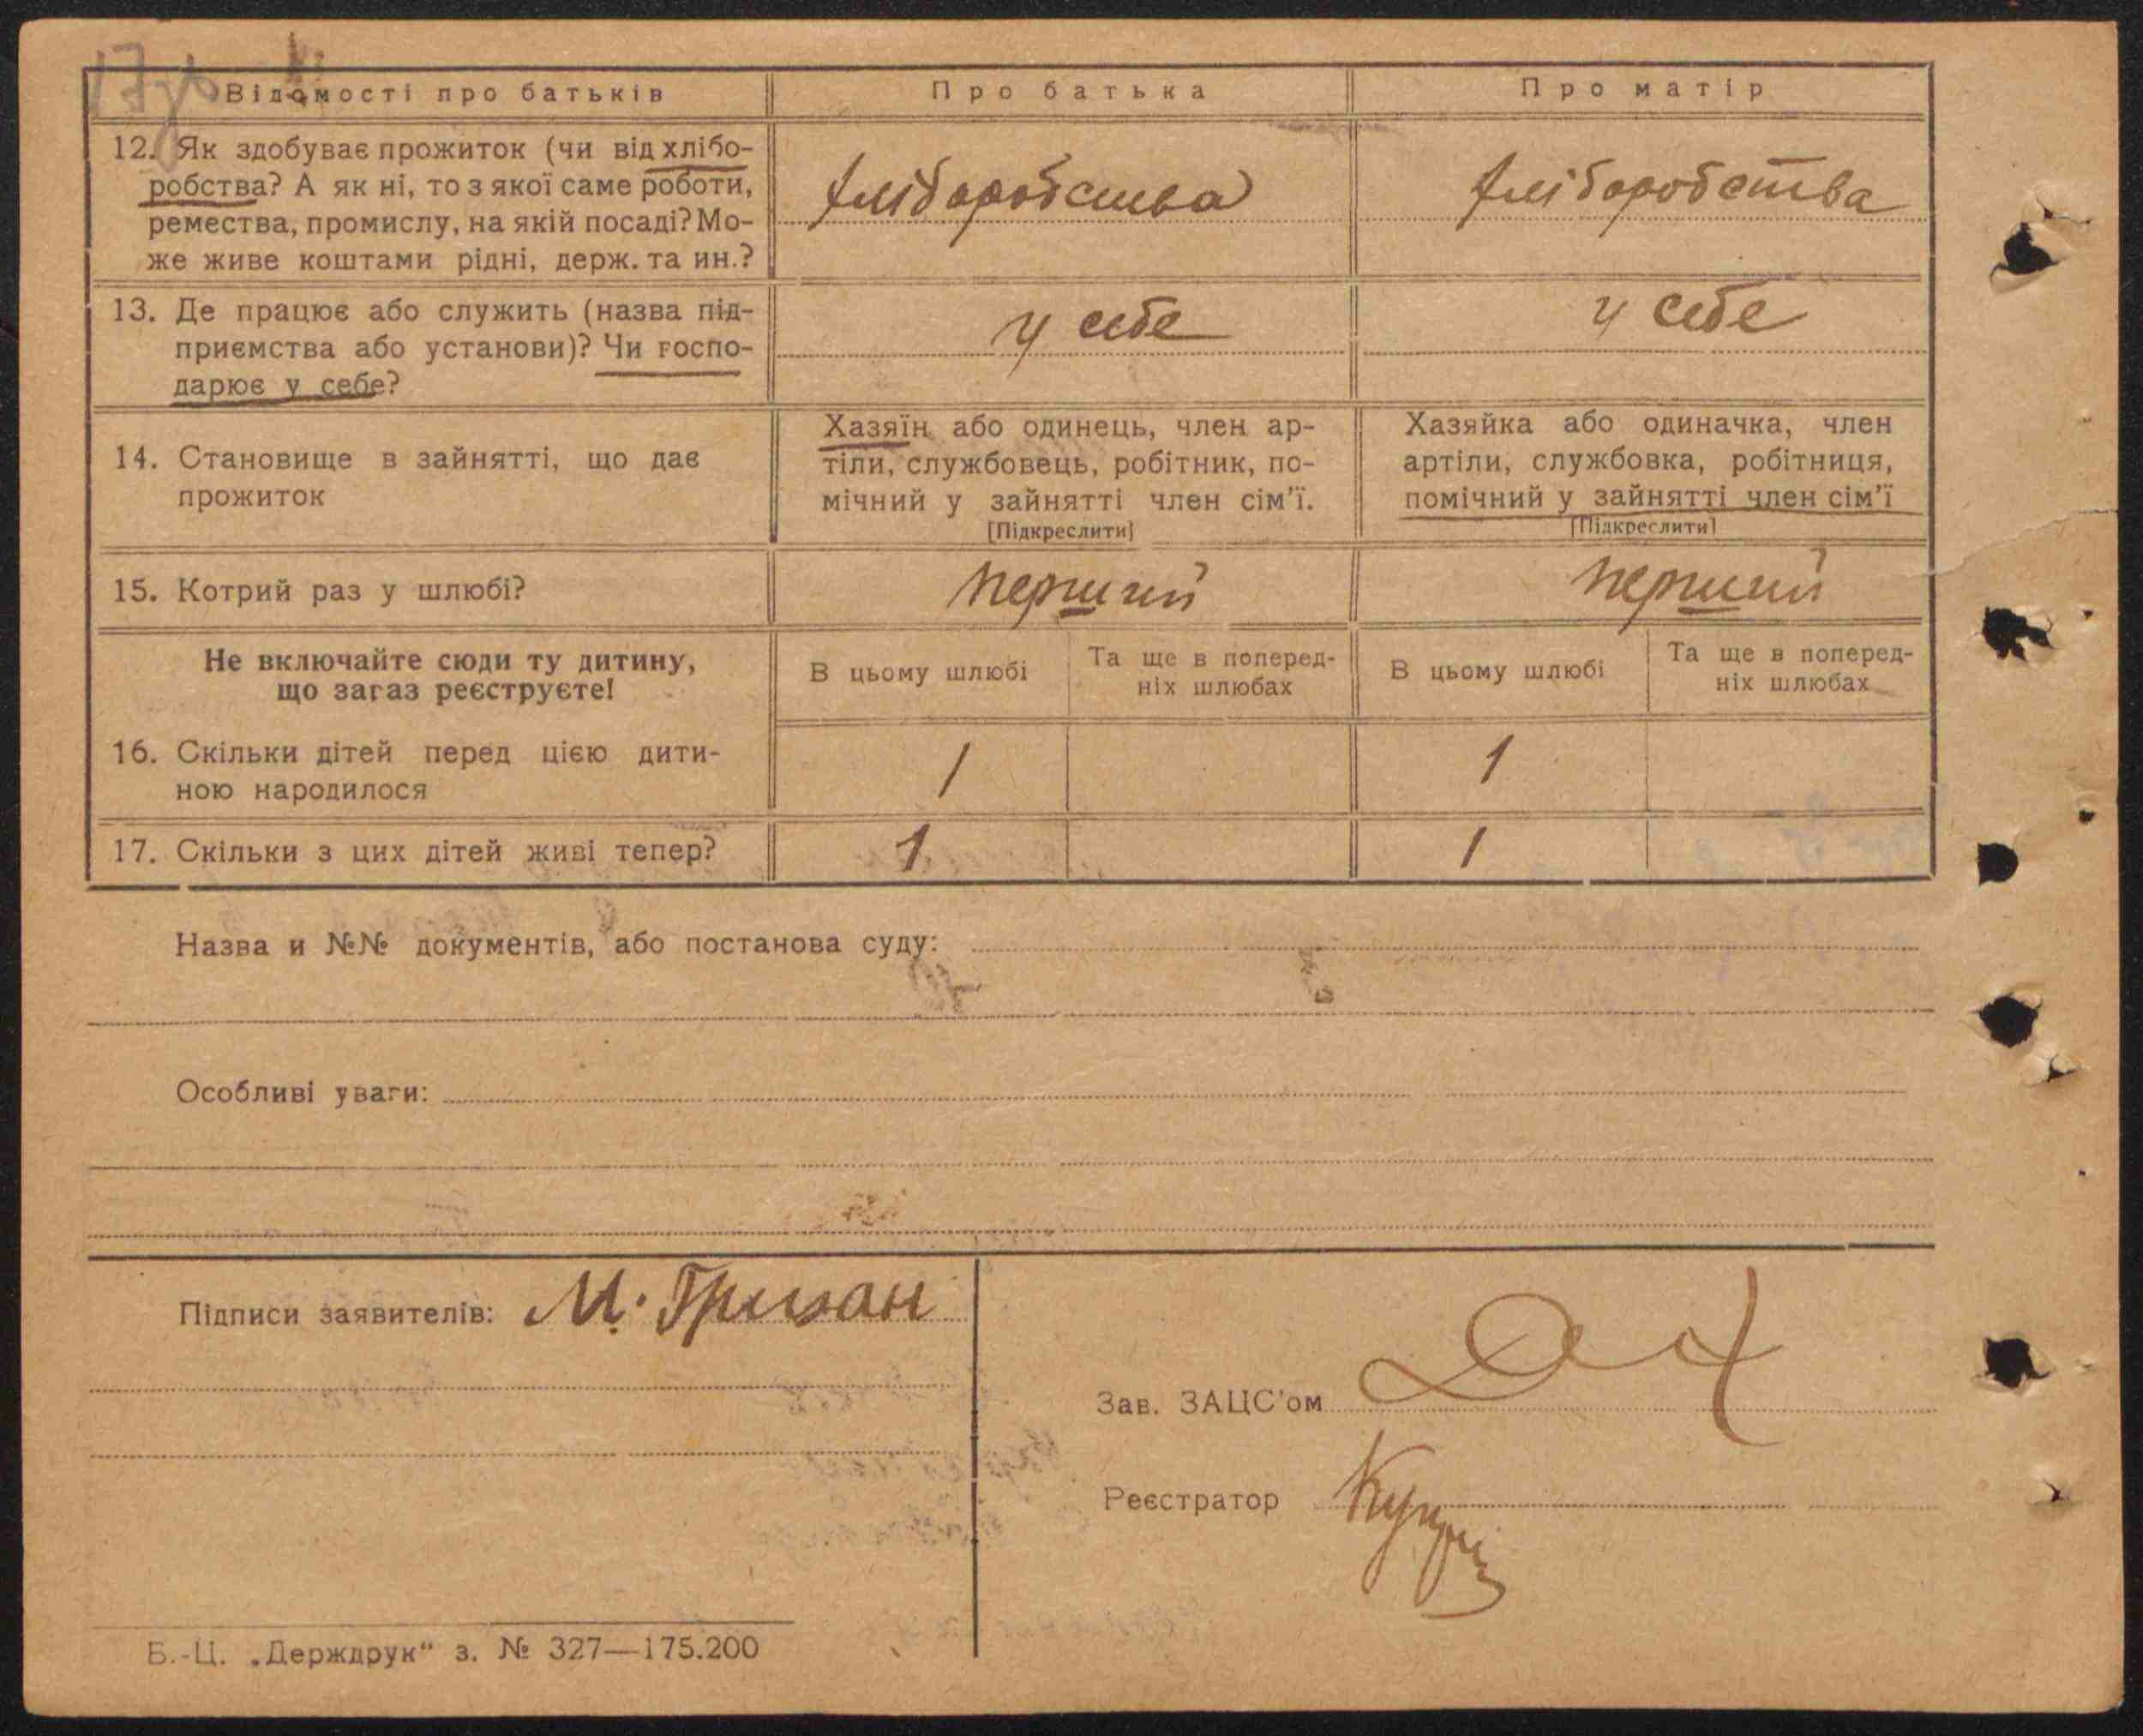 Відомості про батьків
Про батька
Про матір
12. Як здобуває прожиток (чи від хлібо-
робства? А як ні, то з якої саме роботи,
ремества, промислу, на якій посаді? Мо-
же живе коштами рідні, держ. та ин.?
хліборобства
хліборобства
13. Де працює або служить (назва під-
приємства або установи)? Чи госпо-
дарює у себе?
у себе
у себе
14. Становище в зайнятті, що дає
прожиток
Хазяїн або одинець, член ар-
тіли, службовець, робітник, по-
мічний у зайнятті член сім'ї.
[Підкреслити]
Хазяйка або одиначка, член
артіли, службовка, робітниця,
помічний у зайнятті член сім'ї
[Підкреслити]
15. Котрий раз у шлюбі?
перший
перший
Не включайте сюди ту дитину,
що зараз реєструєте!
В цьому шлюбі
Та ще в поперед-
ніх шлюбах
В цьому шлюбі
Та ще в поперед-
ніх шлюбах
16. Скільки дітей перед цією дити-
ною народилося
1
1
17. Скільки з цих дітей живі тепер?
1
1
Назва и №№ документів, або постанова суду:
Особливі уваги:
Підписи заявителів: М. Гризан
Зав. ЗАЦС'ом
Реєстратор
Б.-Ц. „Держдрук" з. № 327—175.200